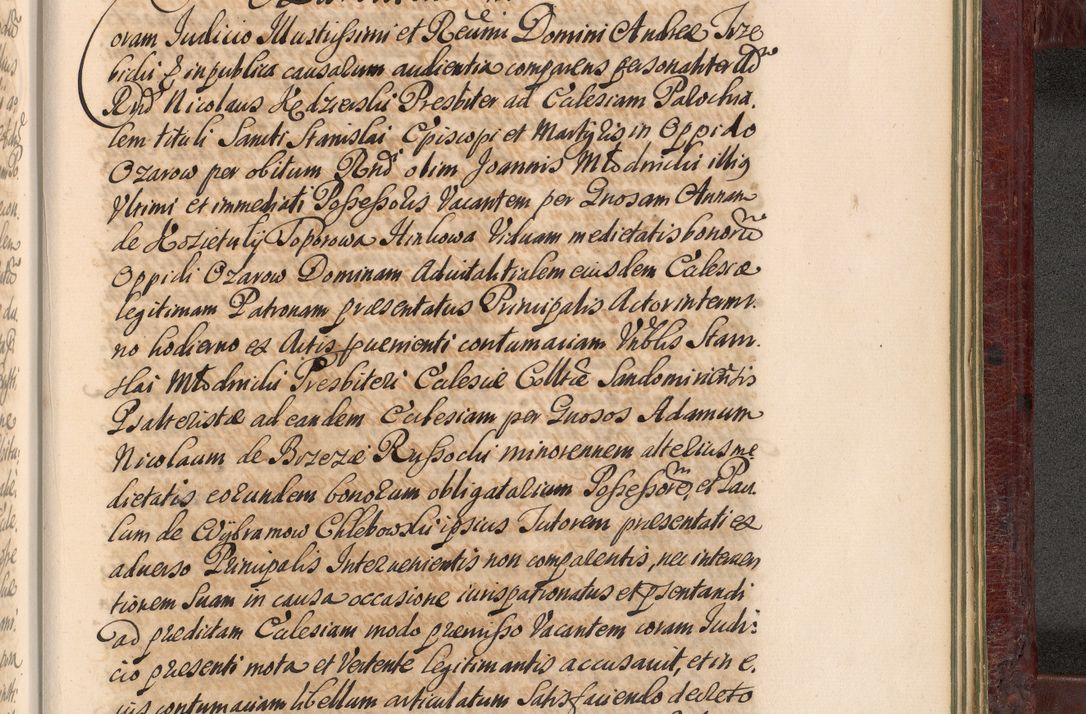 oram Judicio Illustissimi et Reũmi Domini Andreæ Trze
bicki &c in publica causarum audientia comparens personaliter Adr
Rnd Nicolaus Kędzierski Presbiter ad Ecclesiam Parochia.
lem tituli Sancti Stanislai Episcopi et Martyris in Oppido
Ozarow per obitum Rnd olim Joannis Młodnicki illiq
Vltimi et immediati Possessoris Vacantem per Gnosam Annam
de Kozietuly Toporowa Hinkowa Viduam medietatis bonorũ
Oppidi Ozarow Dominam Aduitalitialem eiusdem Ecclesiæ
legitimam Patronam præsentatus Principalis Actor in termi
no hodierno ex Actis fluenienti contumaciam Vnblis Stani
slai Młodnicki Presbiteri Ecclesiæ Colltæ Sandomiriensis
Psalteristæ ad eandem Ecclesiam per Gnosos Adamum
Nicolaum de Brzezie Russocki minorennem alterius me
dietatis eorundem bonorum obligatarium Possessorem, et Pau
lum de Wybramow Chlebowski ipsius Tutorem præsentati ex
aduerso Principalis Interuenientis non comparentis, nec interuen
tionem suam in causa occasione iurispatronatus et psentandi
ad prædictam Ecclesiam modo præmisso Vacantem coram Judi:
cio præsenti mota et Vertente legitimantis accusauit, et in e.
ius contumaciam libellum articulatum Satisfaciendo decreto